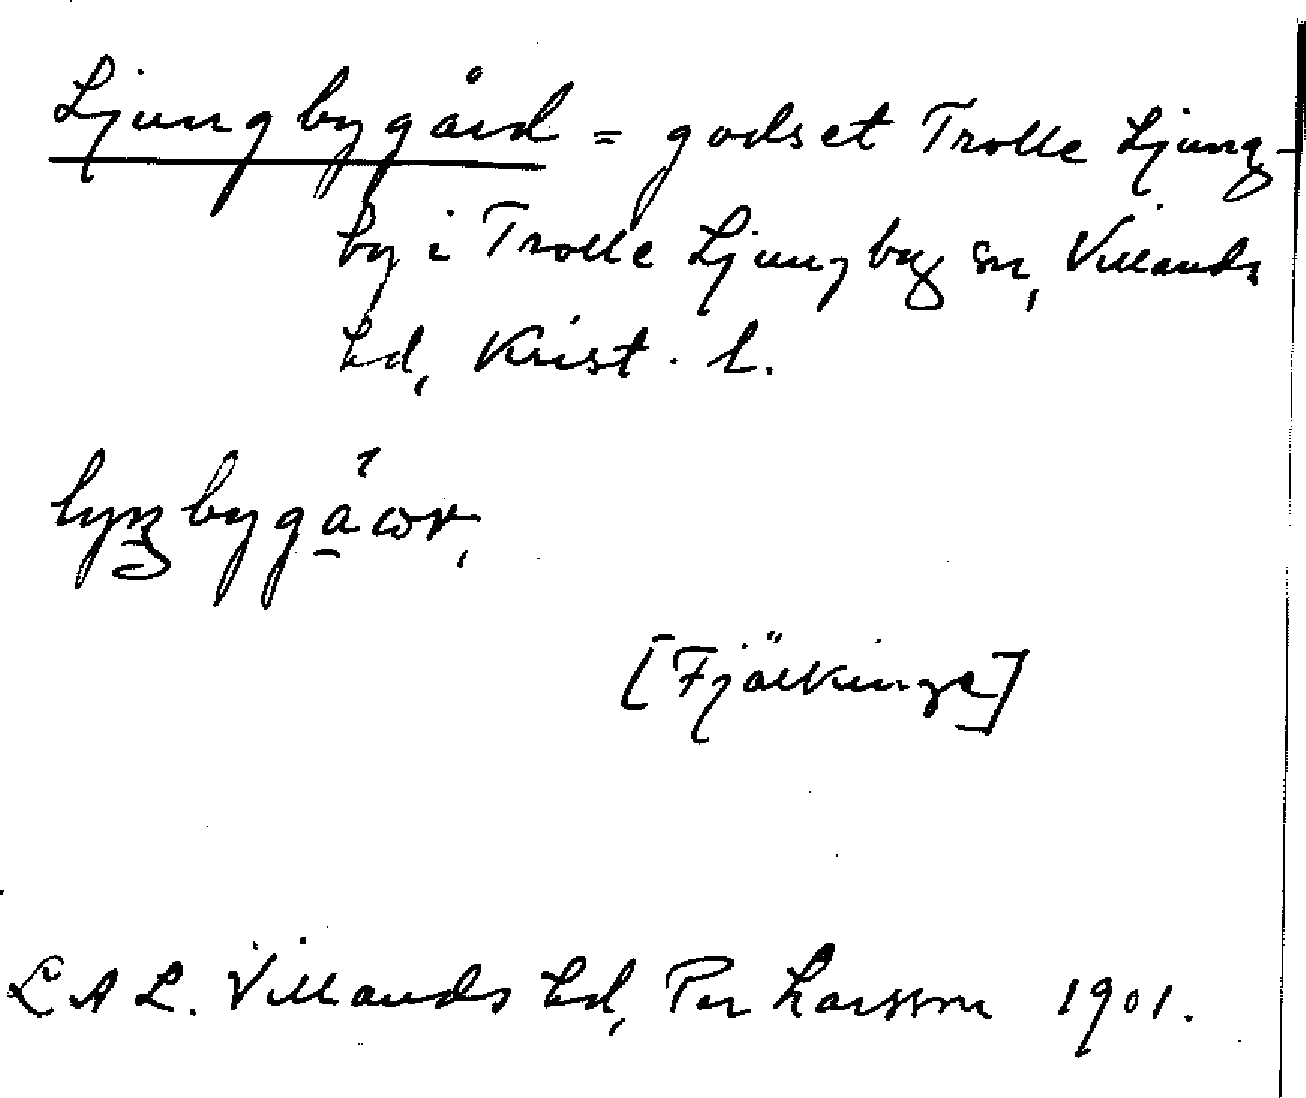 Ljungbygård = godset Trolle Ljung-
by i Trolle Ljungby sn, Villands
hd, Krist. l.
[Fjälkinge]
LAL. Villands hd, Per Larsson 1901.